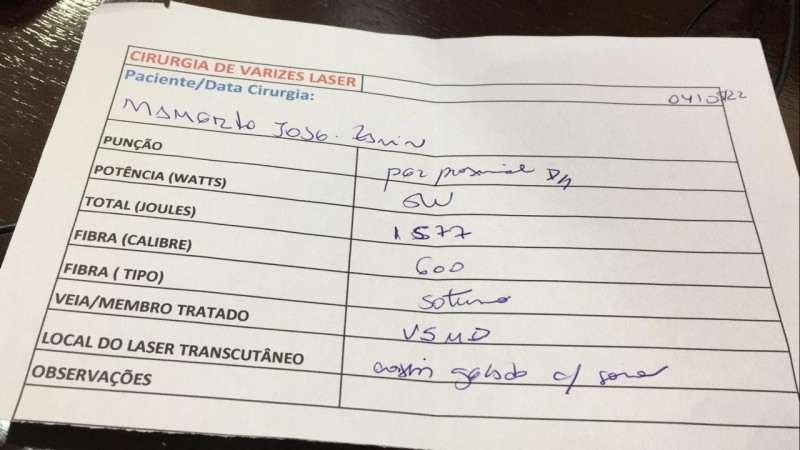 CIRURGIA DE VARIZES LASER
Paciente/Data Cirurgia: 04/05/22
José
PUNÇÃO per proximal
POTÊNCIA (WATTS) 6W
TOTAL (JOULES) 1577
FIBRA (CALIBRE) 600
FIBRA ( TIPO)
VEIA/MEMBRO TRATADO VSMD
LOCAL DO LASER TRANSCUTÂNEO c/
OBSERVAÇÕES